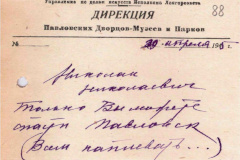 Управление по делам искусств Исполкома Ленгорсовета
88
ДИРЕКЦИЯ
Павловских Дворцов-Музеев и Парков
№
20 апреля 195
Николай
Николаевич
только Вы можете
спасти Павловск
(Всем напишет...)